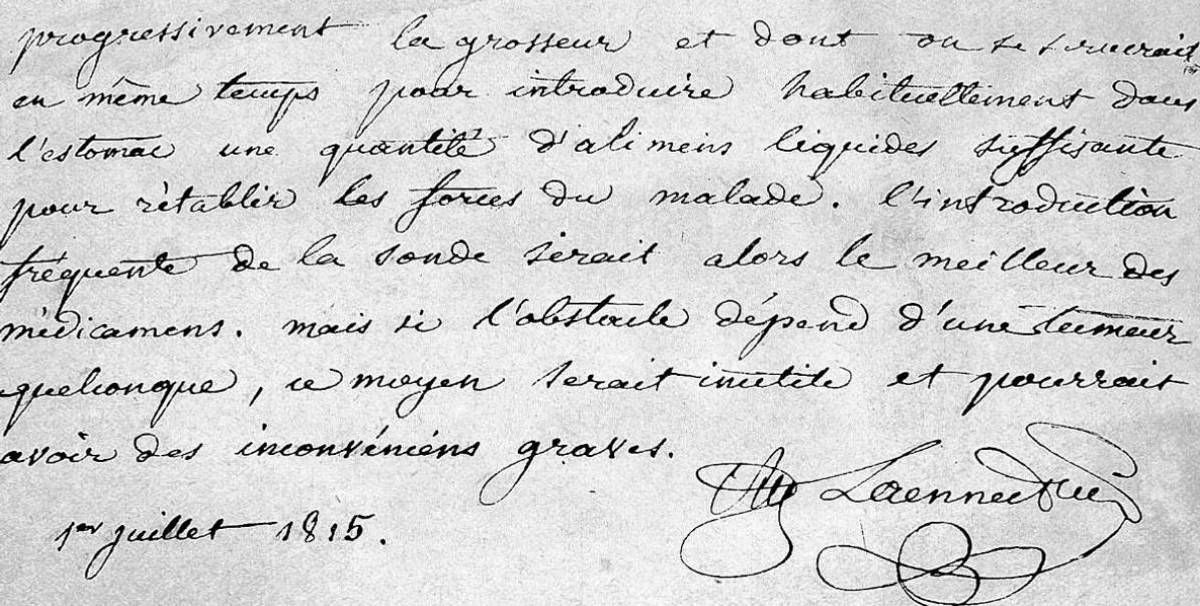 progressivement la grosseur et dont on se servirait
en même temps pour introduire habituellement dans
l'estomac une quantité d'alimens liquides suffisante
pour rétablir les forces du malade. l'introduction
fréquente de la sonde serait alors le meilleur des
médicamens. mais si l'obstacle dépend d'une tumeur
quelconque, ce moyen serait inutile et pourrait
avoir des inconvéniens graves.
Laennec
1er juillet 1815.